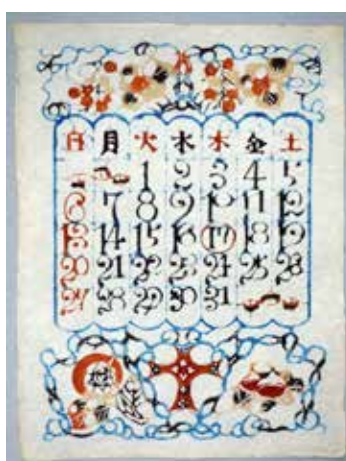 日 月 火 水 木 金 土
1 2 3 4 5
6 7 8 9 10 11 12
13 14 15 16 17 18 19
20 21 22 23 24 25 26
27 28 29 30 31